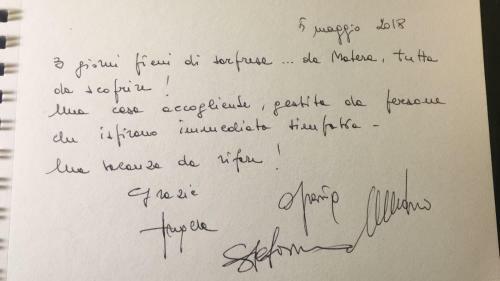 5 maggio 2018
3 giorni pieni di sorprese ... da Matera, tutta
da scoprire!
Una casa accogliente, gestita da persone
che ispirano immediata simpatia -
Una vacanza da rifare!
Grazie
Stefania